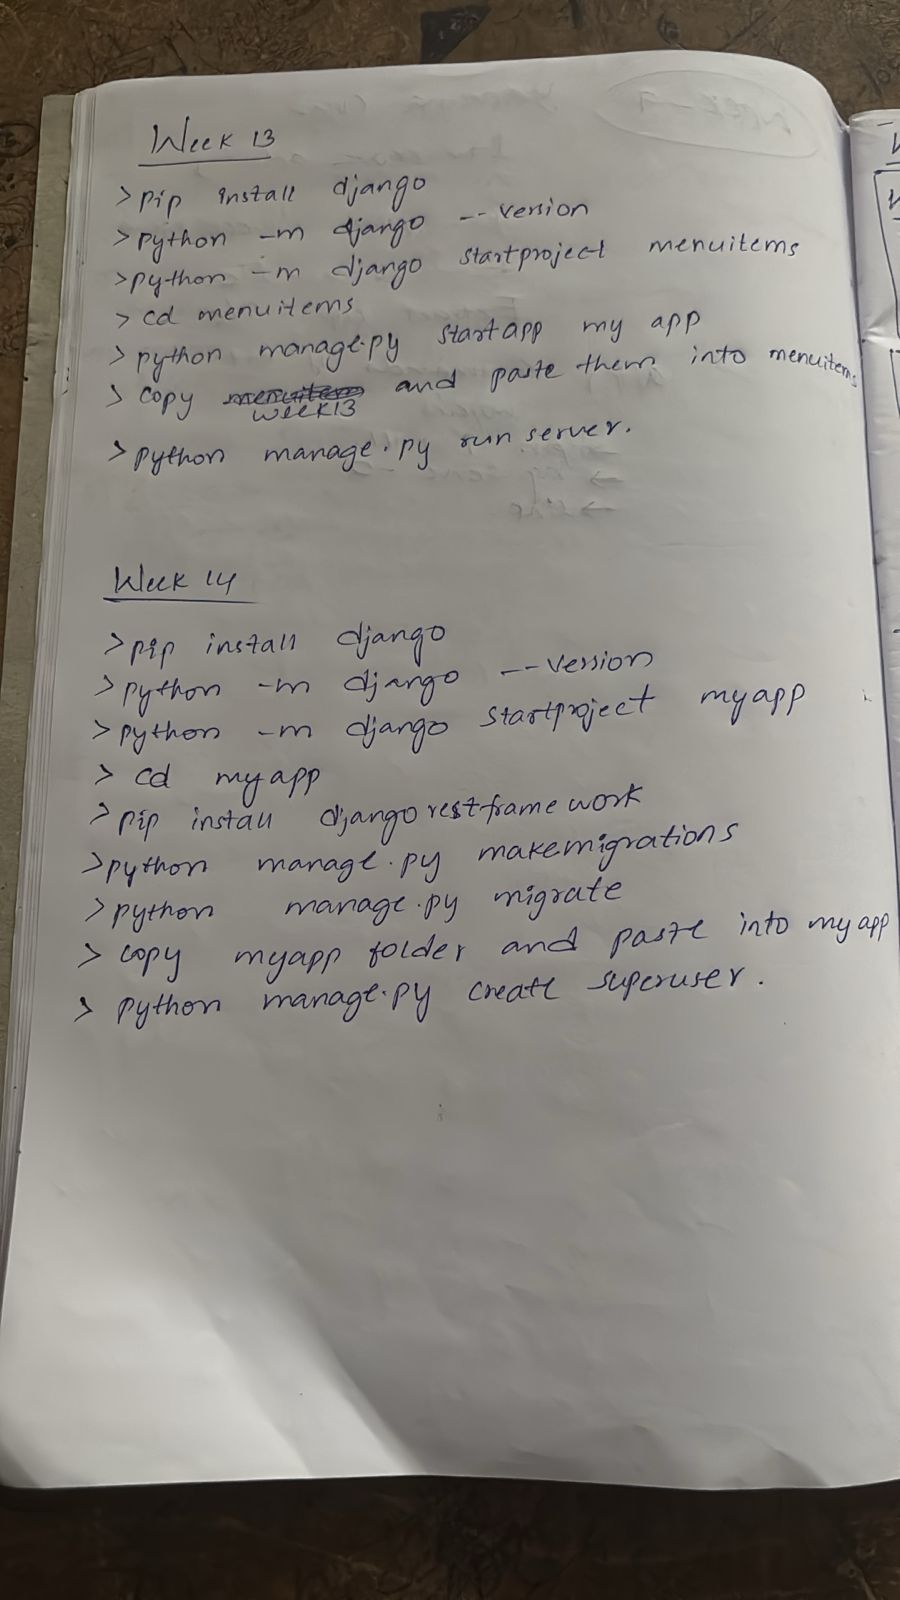 Week 13
> pip install django
> python -m django --version
> python -m django startproject menuitems
> cd menuitems
> python manage.py startapp my app
> copy week13 and paste them into menuitems
> python manage.py run server.
Week 14
> pip install django
> python -m django --version
> python -m django startproject myapp
> cd myapp
> pip install djangorestframework
> python manage.py makemigrations
> python manage.py migrate
> copy myapp folder and paste into myapp
> python manage.py create superuser.